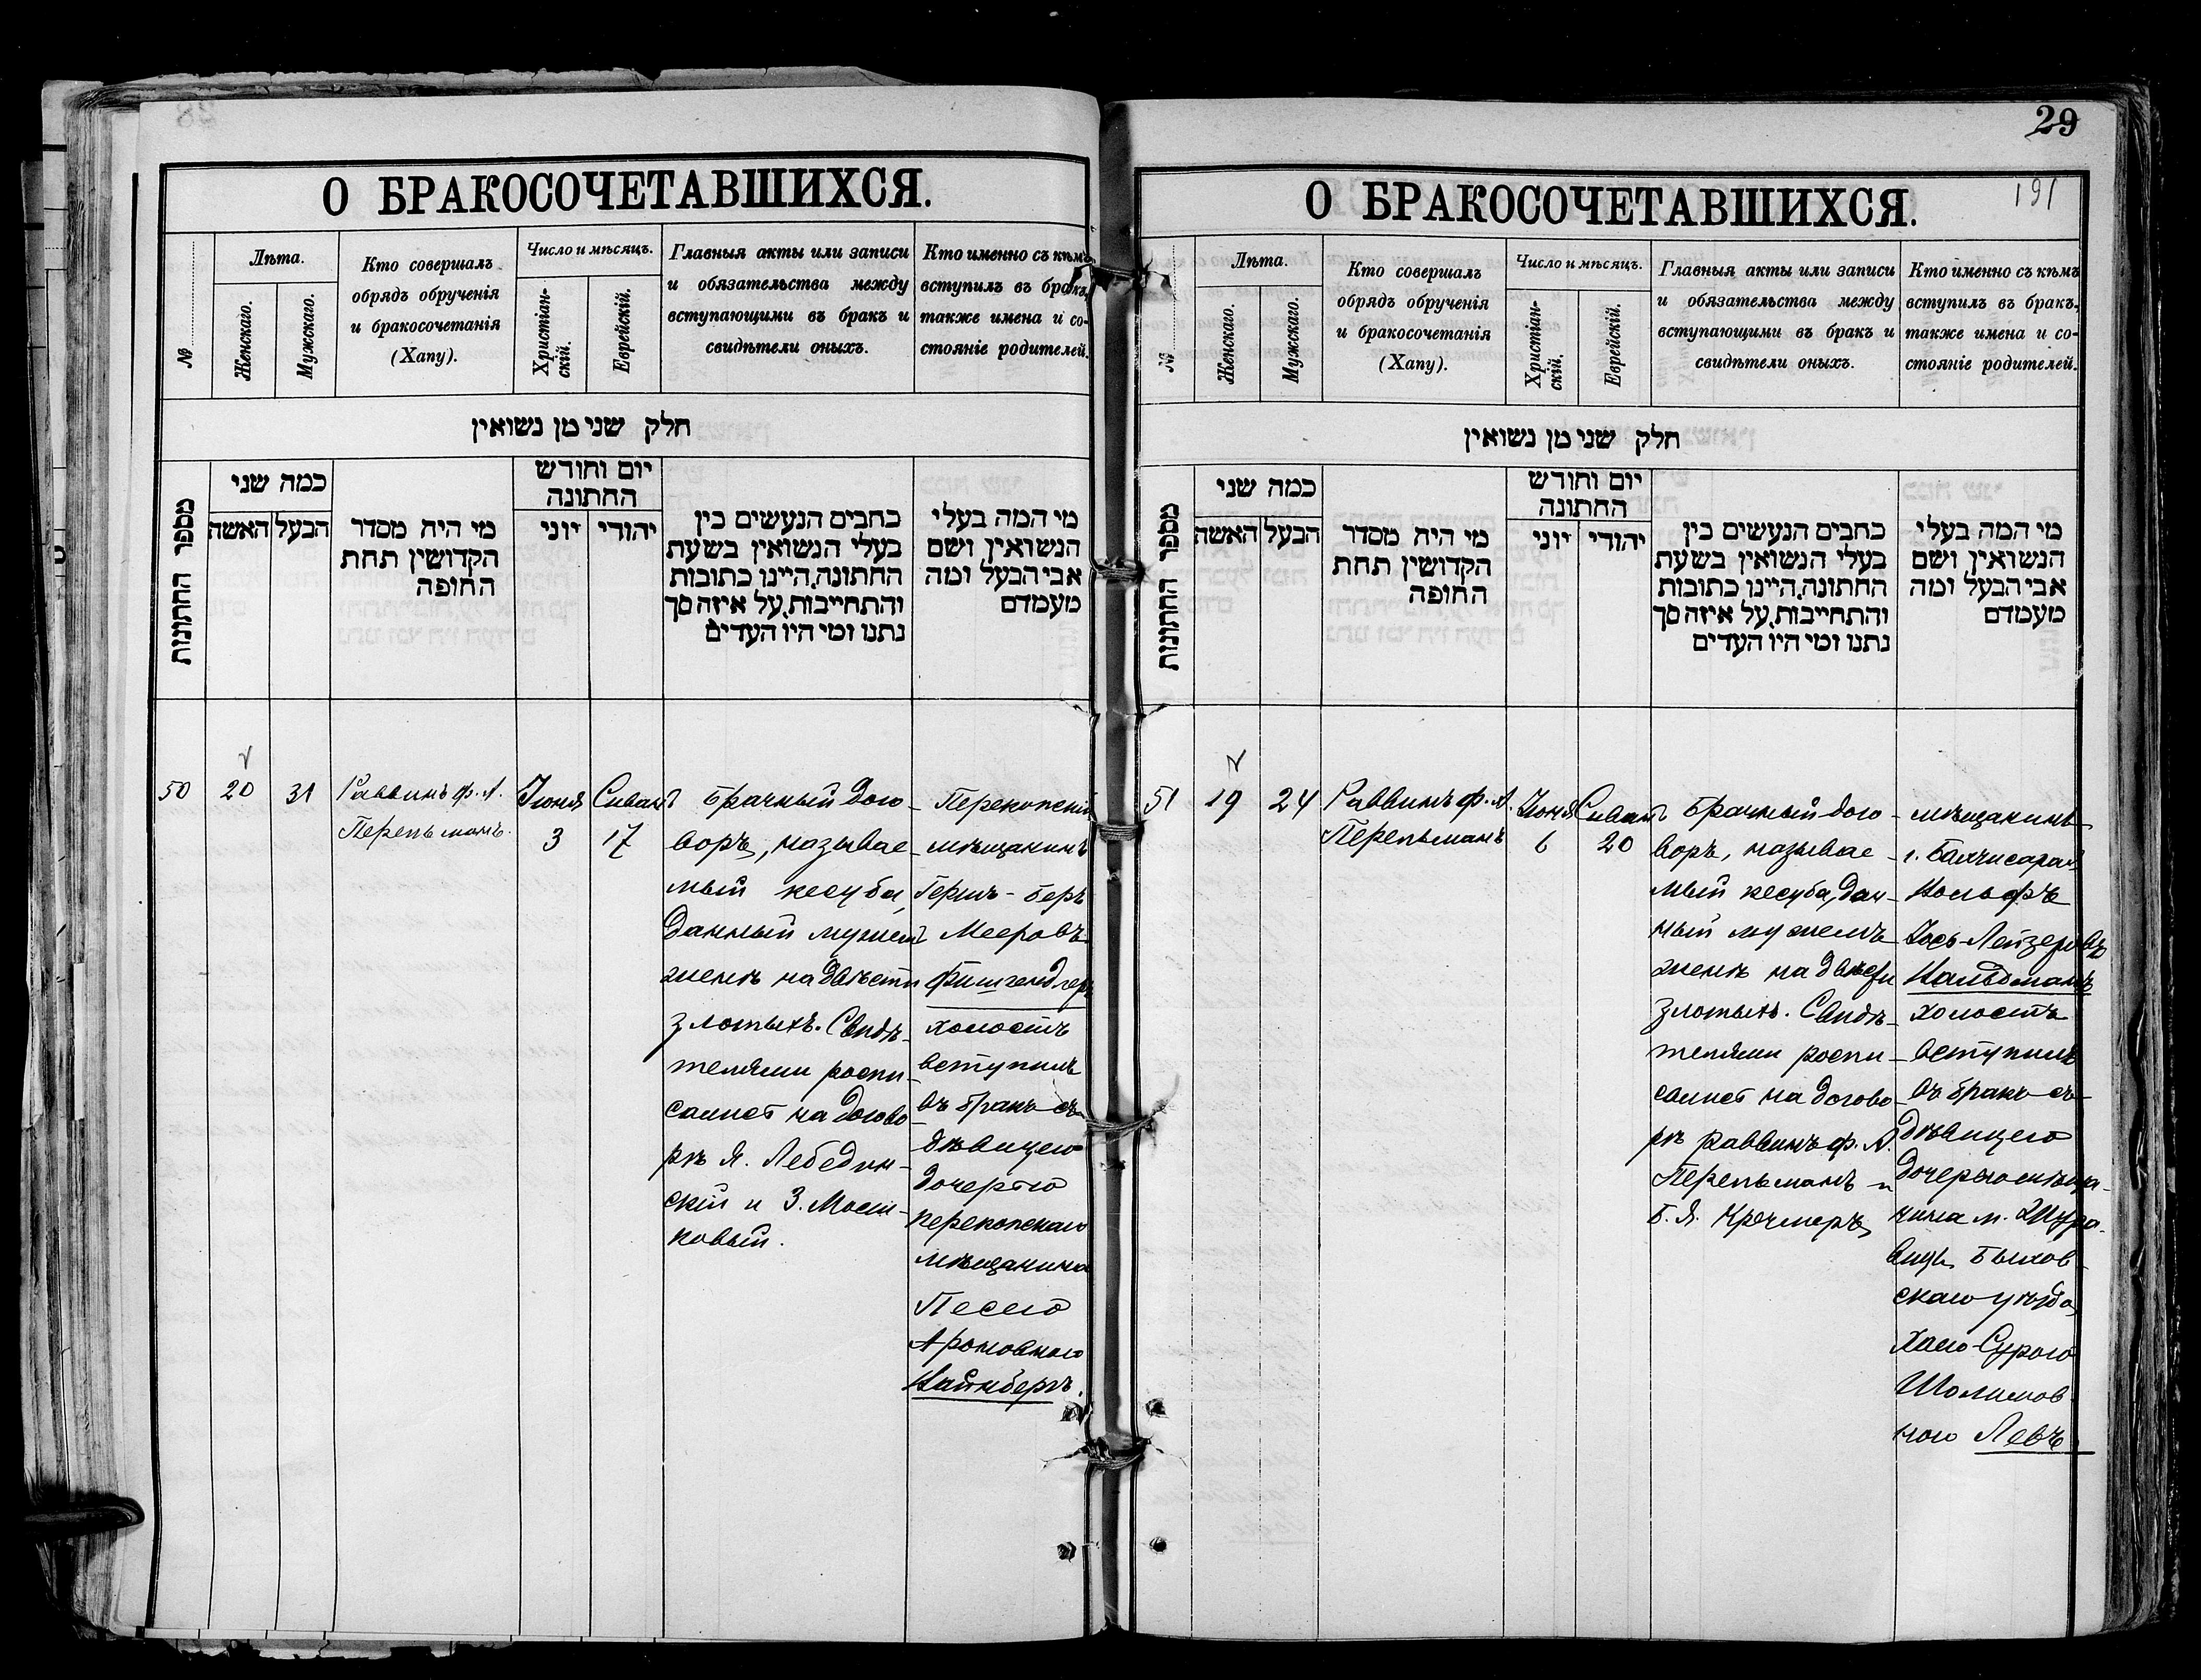 О БРАКОСОЧЕТАВШИХСЯ.
№
Лѣта.
Женскаго.
Мужскаго.
Кто совершалъ
обрядъ обрученія
и бракосочетанія
(Хапу).
Число и мѣсяцъ.
Христіан-
скій.
Еврейскій.
Главныя акты или записи
и обязательства между
вступающими въ бракъ и
свидѣтели оныхъ.
Кто именно съ кѣмъ
вступилъ въ бракъ,
также имена и со-
стояніе родителей.
חלק שני מן נשואין
מספר החתונות
כמה שני
הבעל
האשה
מי היה מסדר
הקדושין תחת
החופה
יום וחודש
החתונה
יהודי
יוני
כתבים הנעשים בין
בעלי הנשואין בשעת
החתונה, היינו כתובות
והתחייבות, על איזה סך
נתנו ומי היו העדים
מי המה בעלי
הנשואין ושם
אבי הבעל ומה
מעמדם
50
20
31
Раввинъ ф. А.
Перельманъ.
Іюня
3
Сиванъ
17
Брачный дого-
воръ, называе-
мый кесуба,
данный мужемъ
женѣ на двѣсти
злотыхъ. Свидѣ-
телями роспи-
сались на догово-
рѣ Я. Лебедин-
скій и З. Мош-
ковый.
Перекопскій
мѣщанинъ
Герш-Беръ
Мееровъ
Фишгендлеръ
холостъ
вступилъ
въ бракъ съ
дѣвицею
дочерью
перекопскаго
мѣщанина
Песею
Ароновною
Вайнбергъ.
29
191
О БРАКОСОЧЕТАВШИХСЯ.
№
Лѣта.
Женскаго.
Мужскаго.
Кто совершалъ
обрядъ обрученія
и бракосочетанія
(Хапу).
Число и мѣсяцъ.
Христіан-
скій.
Еврейскій.
Главныя акты или записи
и обязательства между
вступающими въ бракъ и
свидѣтели оныхъ.
Кто именно съ кѣмъ
вступилъ въ бракъ,
также имена и со-
стояніе родителей.
חלק שני מן נשואין
מספר החתונות
כמה שני
הבעל
האשה
מי היה מסדר
הקדושין תחת
החופה
יום וחודש
החתונה
יהודי
יוני
כתבים הנעשים בין
בעלי הנשואין בשעת
החתונה, היינו כתובות
והתחייבות, על איזה סך
נתנו ומי היו העדים
מי המה בעלי
הנשואין ושם
אבי הבעל ומה
מעמדם
51
19
24
Раввинъ ф. А.
Перельманъ
Іюня
6
Сиванъ
20
Брачный дого-
воръ, называе-
мый кесуба, дан-
ный мужемъ
женѣ на двѣсти
злотыхъ. Свидѣ-
телями роспи-
сались на догово-
рѣ раввинъ ф. А.
Перельманъ и
Б. Я. Кречмеръ
мѣщанинъ
г. Бахчисарая
Вольфъ
Іось-Лейзеровъ
Вальдманъ
холостъ
вступилъ
въ бракъ съ
дѣвицею
дочерью мѣща-
нина м. Жура-
вичъ Быхов-
скаго уѣзда
Хаею-Сурою
Шолимов-
ною Левъ